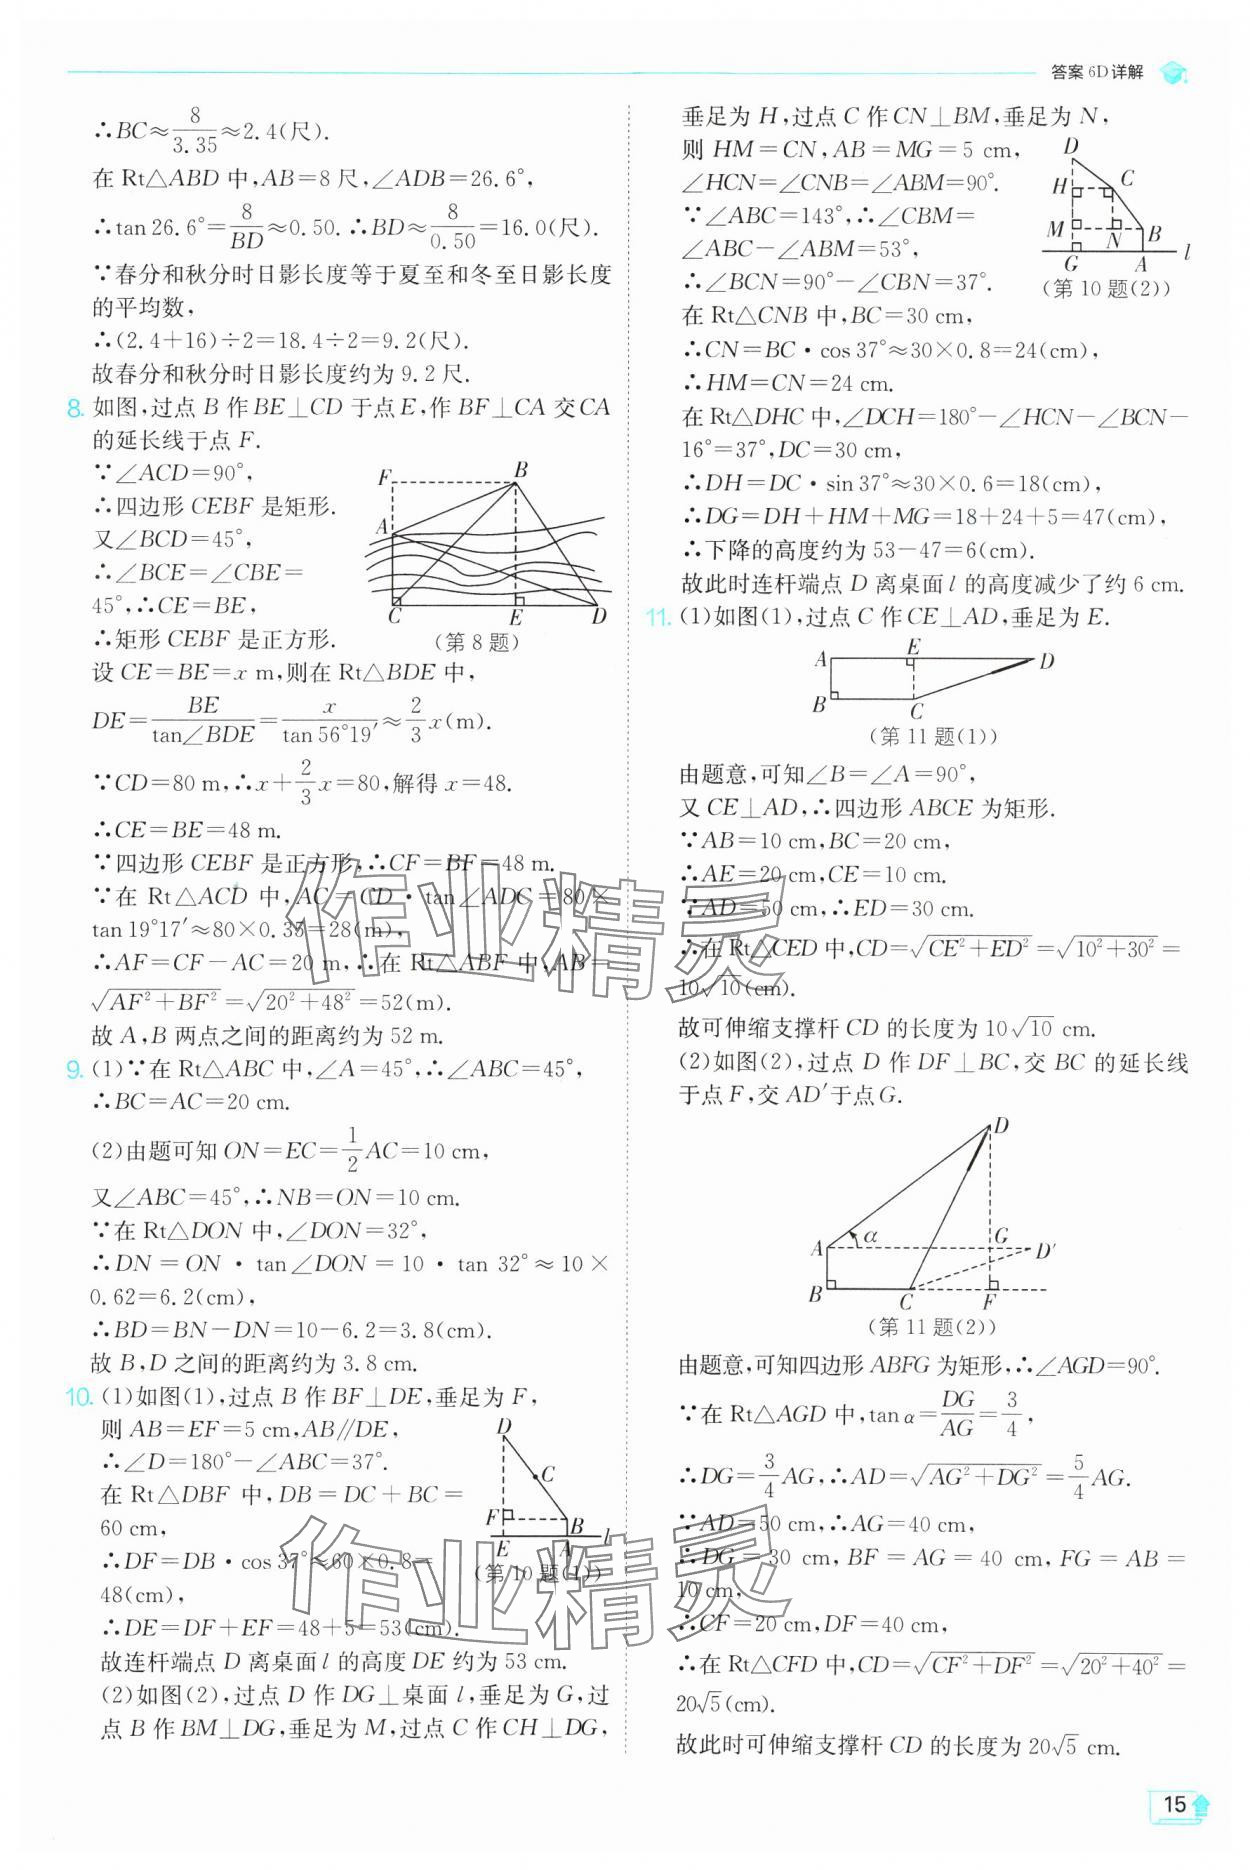 答案 6D详解
∴BC≈8/3.35≈2.4(尺).
在 Rt△ABD 中,AB=8尺,∠ADB=26.6°,
∴tan 26.6°=8/BD≈0.50. ∴BD≈8/0.50=16.0(尺).
∵春分和秋分时日影长度等于夏至和冬至日影长度
的平均数,
∴(2.4+16)÷2=18.4÷2=9.2(尺).
故春分和秋分时日影长度约为 9.2 尺.
8. 如图,过点 B 作BE⊥CD 于点E,作 BF⊥CA 交CA
的延长线于点 F.
∵∠ACD=90°,
∴四边形 CEBF 是矩形.
又∠BCD=45°,
∴∠BCE=∠CBE=
45°,∴CE=BE,
∴矩形 CEBF 是正方形.
F B A C E D
(第 8 题)
设 CE=BE=x m,则在 Rt△BDE 中,
DE=BE/tan∠BDE=x/tan 56°19′≈2/3x(m).
∵CD=80 m,∴x+2/3x=80,解得 x=48.
∴CE=BE=48 m.
∵四边形 CEBF 是正方形,∴CF=BF=48 m.
∵在 Rt△ACD 中,AC=CD·tan∠ADC=80×
tan 19°17′≈80×0.35=28(m),
∴AF=CF-AC=20 m,∴在 Rt△ABF 中,AB=
√(AF²+BF²)=√(20²+48²)=52(m).
故 A,B 两点之间的距离约为 52 m.
9. (1)∵在 Rt△ABC 中,∠A=45°,∴∠ABC=45°,
∴BC=AC=20 cm.
(2)由题可知 ON=EC=1/2AC=10 cm,
又∠ABC=45°,∴NB=ON=10 cm.
∵在 Rt△DON 中,∠DON=32°,
∴DN=ON·tan∠DON=10·tan 32°≈10×
0.62=6.2(cm),
∴BD=BN-DN=10-6.2=3.8(cm).
故 B,D 之间的距离约为 3.8 cm.
10. (1)如图(1),过点 B 作 BF⊥DE,垂足为 F,
则 AB=EF=5 cm,AB∥DE,
∴∠D=180°-∠ABC=37°.
在 Rt△DBF 中,DB=DC+BC=
60 cm,
∴DF=DB·cos 37°≈60×0.8=
48(cm),
D C F B E A l
(第 10 题(1))
∴DE=DF+EF=48+5=53(cm).
故连杆端点 D 离桌面 l 的高度 DE 约为 53 cm.
(2)如图(2),过点 D 作 DG⊥桌面 l,垂足为 G,过
点 B 作BM⊥DG,垂足为 M,过点 C 作 CH⊥DG,
垂足为 H,过点 C 作 CN⊥BM,垂足为 N,
则 HM=CN,AB=MG=5 cm,
∠HCN=∠CNB=∠ABM=90°.
∵∠ABC=143°,∴∠CBM=
∠ABC-∠ABM=53°,
∴∠BCN=90°-∠CBN=37°.
D H C M N B G A l
(第 10 题(2))
在 Rt△CNB 中,BC=30 cm,
∴CN=BC·cos 37°≈30×0.8=24(cm),
∴HM=CN=24 cm.
在 Rt△DHC 中,∠DCH=180°-∠HCN-∠BCN-
16°=37°,DC=30 cm,
∴DH=DC·sin 37°≈30×0.6=18(cm),
∴DG=DH+HM+MG=18+24+5=47(cm),
∴下降的高度约为 53-47=6(cm).
故此时连杆端点 D 离桌面 l 的高度减少了约 6 cm.
11. (1)如图(1),过点 C 作 CE⊥AD,垂足为 E.
A E D B C
(第 11 题(1))
由题意,可知∠B=∠A=90°,
又 CE⊥AD,∴四边形 ABCE 为矩形.
∵AB=10 cm,BC=20 cm,
∴AE=20 cm,CE=10 cm.
∵AD=50 cm,∴ED=30 cm.
∴在 Rt△CED 中,CD=√(CE²+ED²)=√(10²+30²)=
10√10(cm).
故可伸缩支撑杆 CD 的长度为 10√10 cm.
(2)如图(2),过点 D 作 DF⊥BC,交 BC 的延长线
于点 F,交 AD′于点G.
D A α G D′ B C F
(第 11 题(2))
由题意,可知四边形 ABFG 为矩形,∴∠AGD=90°.
∵在 Rt△AGD 中,tan α=DG/AG=3/4,
∴DG=3/4AG,∴AD=√(AG²+DG²)=5/4AG.
∵AD=50 cm,∴AG=40 cm,
∴DG=30 cm,BF=AG=40 cm,FG=AB=
10 cm,
∴CF=20 cm,DF=40 cm,
∴在 Rt△CFD 中,CD=√(CF²+DF²)=√(20²+40²)=
20√5(cm).
故此时可伸缩支撑杆 CD 的长度为 20√5 cm.
作业精灵
作业精灵
15